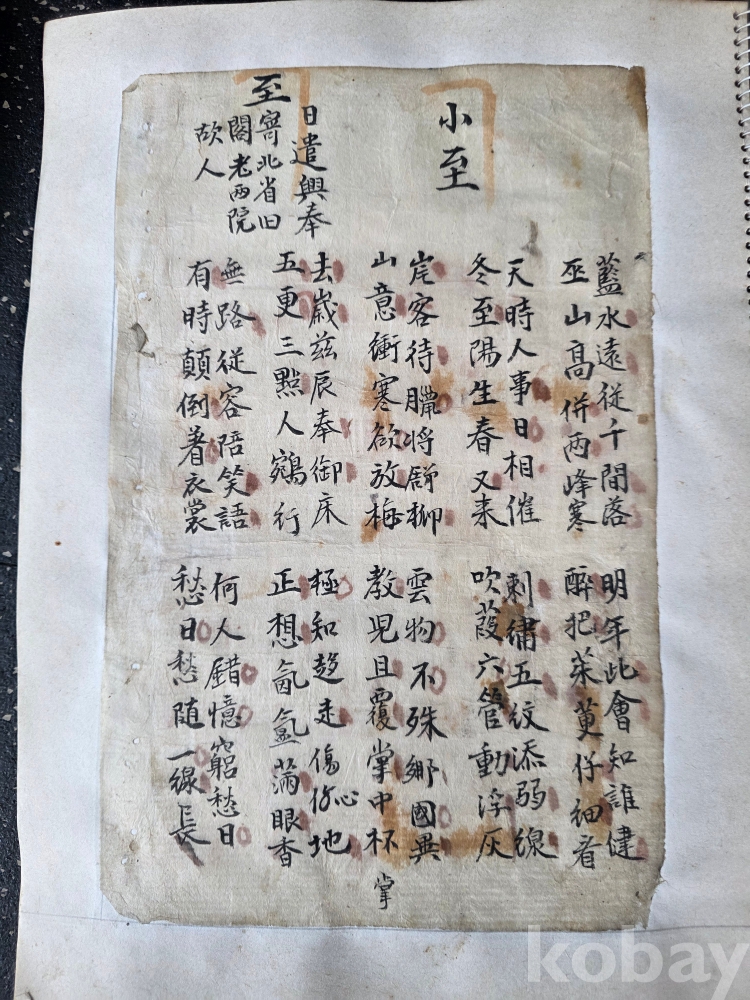 藍水遠從千間落
巫山高併两峰寒
明年此會知誰健
醉把茱萸仔細看
小至
天時人事日相催
冬至陽生春又来
刺繡五紋添弱線
吹葭六管動浮灰
岸容待臘將舒柳
山意衝寒欲放梅
雲物不殊鄉國異
教児且覆掌中杯
掌
至
日遣興奉
寄北省旧
閣老两院
故人
去歲茲辰奉御床
五更三點人鵷行
極知趍走傷心地
正想氤氳滿眼香
無路從容陪笑語
有時顛倒着衣裳
何人錯憶窮愁日
愁日愁随一線長
kobay